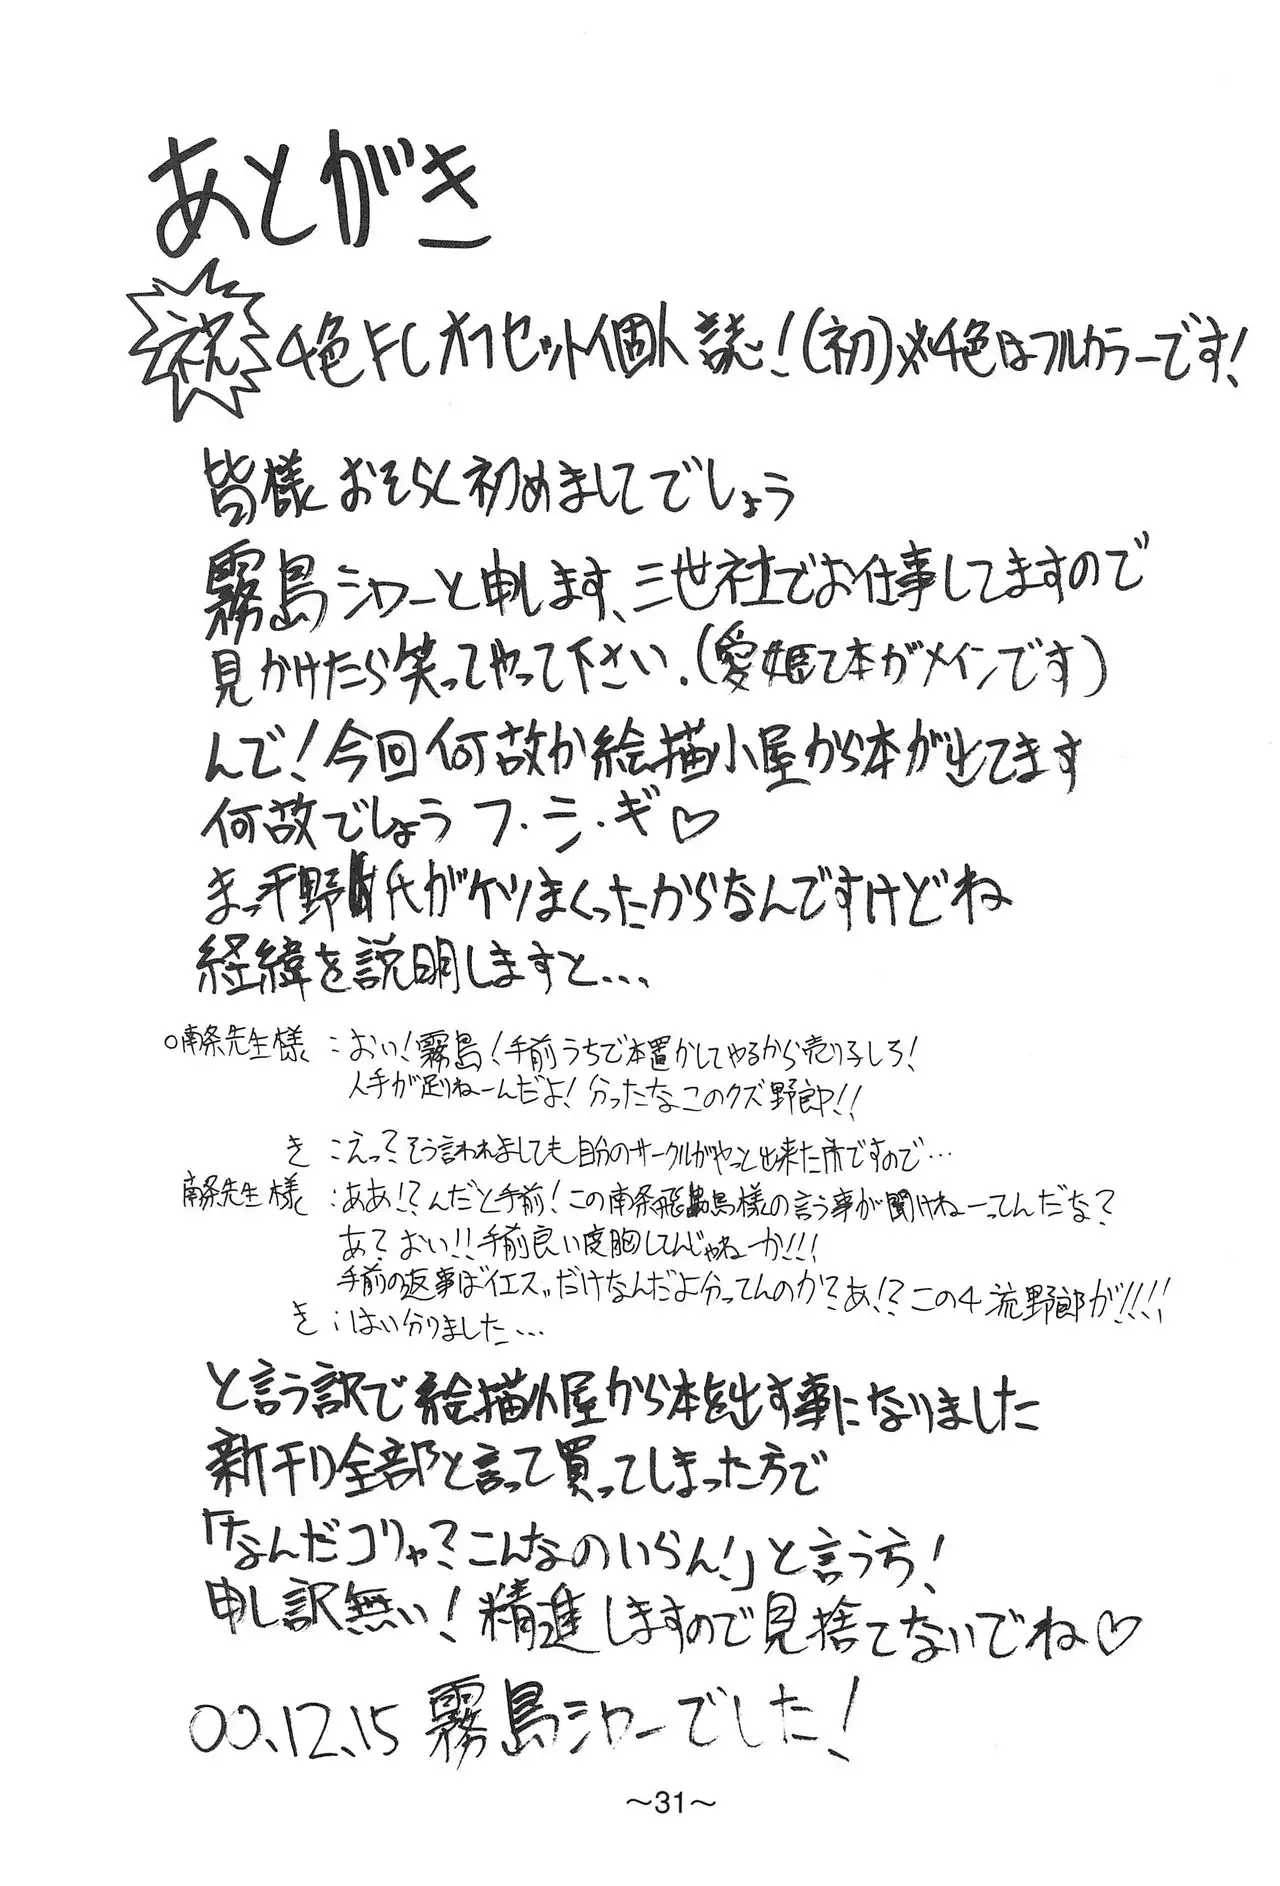 あとがき
祝 4色FCオフセット個人誌!(初)※4色はフルカラーです!
皆様おそらく初めましてでしょう
霧島シャワーと申します、三世社でお仕事してますので
見かけたら笑ってやって下さい.(愛姫て本がメインです)
んで!今回何故か絵描小屋から本が出てます
何故でしょうフ・シ・ギ♡
まっ平野氏がケツまくったからなんですけどね
経緯を説明しますと...
○南条先生様:おい!霧島!手前うちで本置かしてやるから売り子しろ!
人手が足りねーんだよ!分ったなこのクズ野郎!!
き:えっ?そう言われましても自分のサークルがやっと出来た所ですので...
南条先生様:ああ!?んだと手前!この南条飛鳥様の言う事が聞けねーってんだな?
あ?おい!!手前良い度胸してんじゃねーか!!!
手前の返事は"イエス"だけなんだよ分ってんのか?あ!?この4流野郎が!!!!
き:はい分りました...
と言う訳で絵描小屋から本を出す事になりました
新刊全部と言って買ってしまった方で
「なんだコリャ?こんなのいらん!」と言う方!
申し訳無い!精進しますので見捨てないでね♡
00.12.15 霧島シャワーでした!
～31～